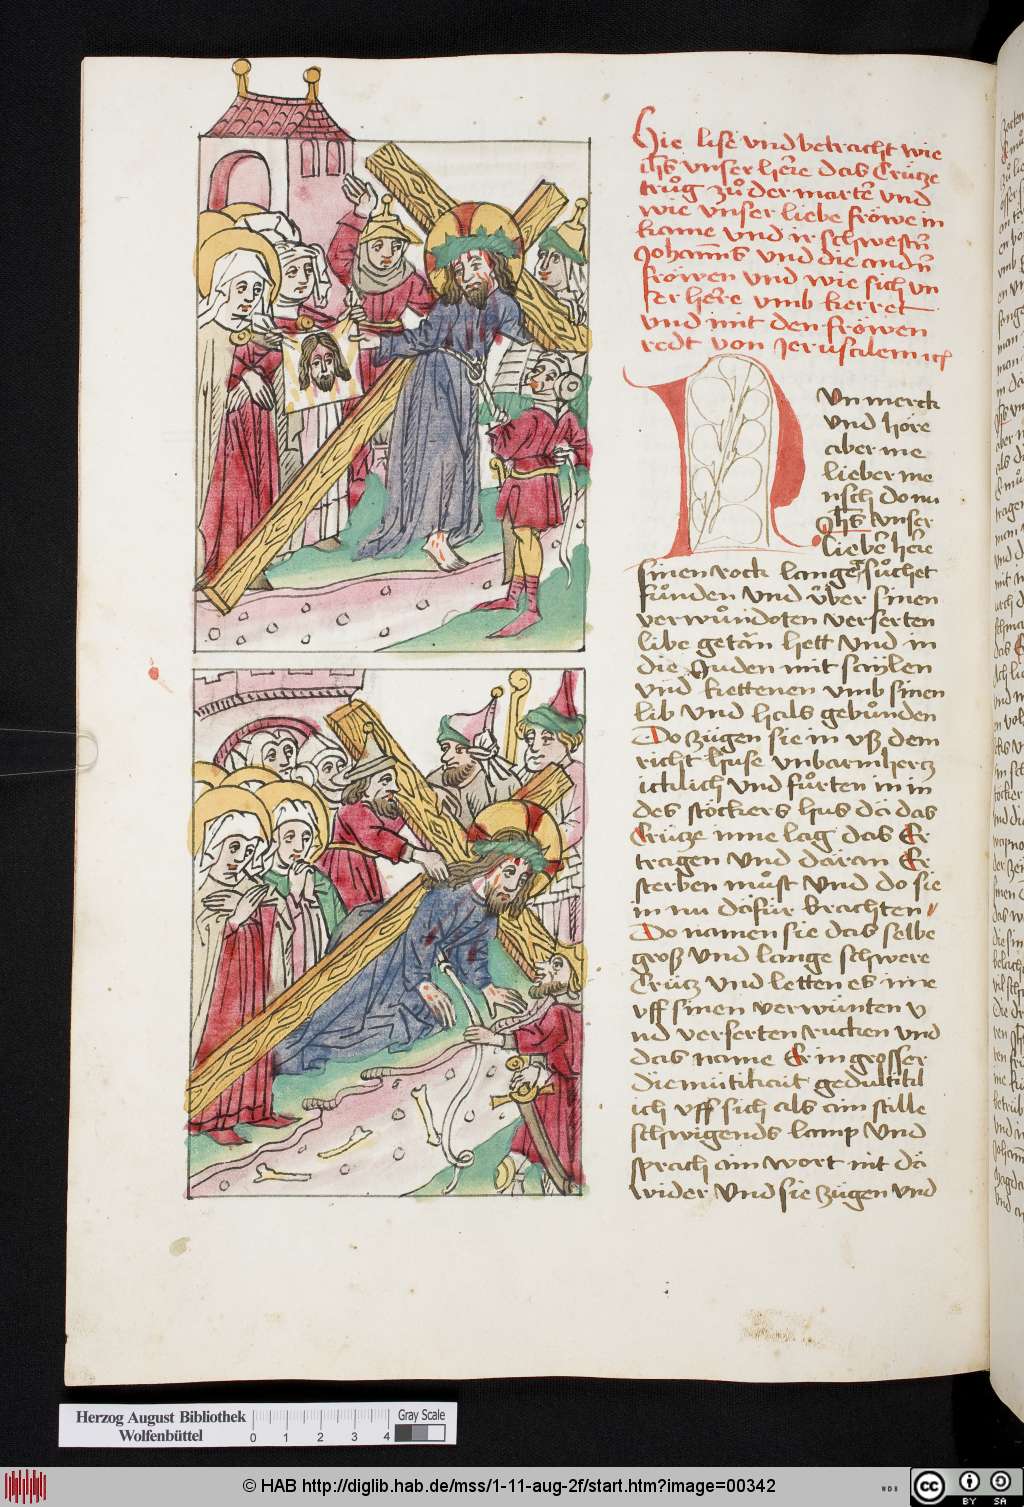 Hie lise vnd betracht wie
ihs vnser here das Crütze
trůg zů der marter vnd
wie vnser liebe fröwe in
kame vnd ir schwestn
Johanns vnd die andn
fröwen vnd wie sich vn
ser here vmb kerret
vnd mit den fröwen
redt von Jerusalem ich
Nvn merck
vnd höre
aber me
lieber me
nsch do nu
ihs vnser
lieber here
sinen rock lange sůchet
fůnden vnd über sinen
verwůndoten verserten
libe getän hett vnd in
die Juden mit saylen
vnd kettenen vmb sinen
lib vnd hals gebůnden
Do zügen sie in vß dem
richt huse vnbarmhertz
icklich vnd fůrten in in
des stöckers hus dä das
Crütze inne lag das Er
tragen vnd däran Er
sterben můst vnd do sie
im nu däfür brachten
Do namen sie das selbe
groß vnd lange schwere
Crütz vnd letten es ime
vff sinen verwünten v
nd verserten rucken vnd
das name Er in grosser
diemütikait gedultikl
ich vff sich als ain stille
schwigends lamp vnd
sprach ain wort nit dä
wider vnd sie zügen vnd
Herzog August Bibliothek
Wolfenbüttel
0 1 2 3 4
Gray Scale
© HAB http://diglib.hab.de/mss/1-11-aug-2f/start.htm?image=00342
cc BY SA